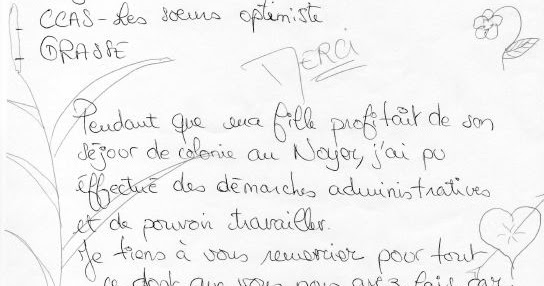 CCAS - Les sœurs optimiste
GRASSE
MERCI
Pendant que ma fille profitait de son
séjour de colonie au Noyer, j'ai pu
effectué des démarches administratives
et de pouvoir travailler.
Je tiens à vous remercier pour tout
ce dont que vous nous avez fait car